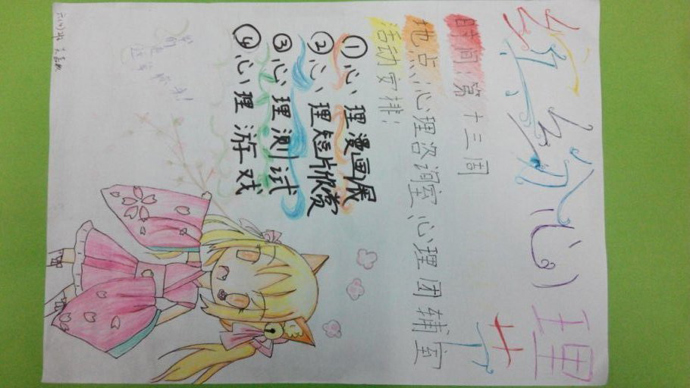 缤纷心理节
时间:第十三周
地点:心理咨询室 心理团辅室
活动安排:
①心理漫画展
②心理短片欣赏
③心理测试
④心理游戏